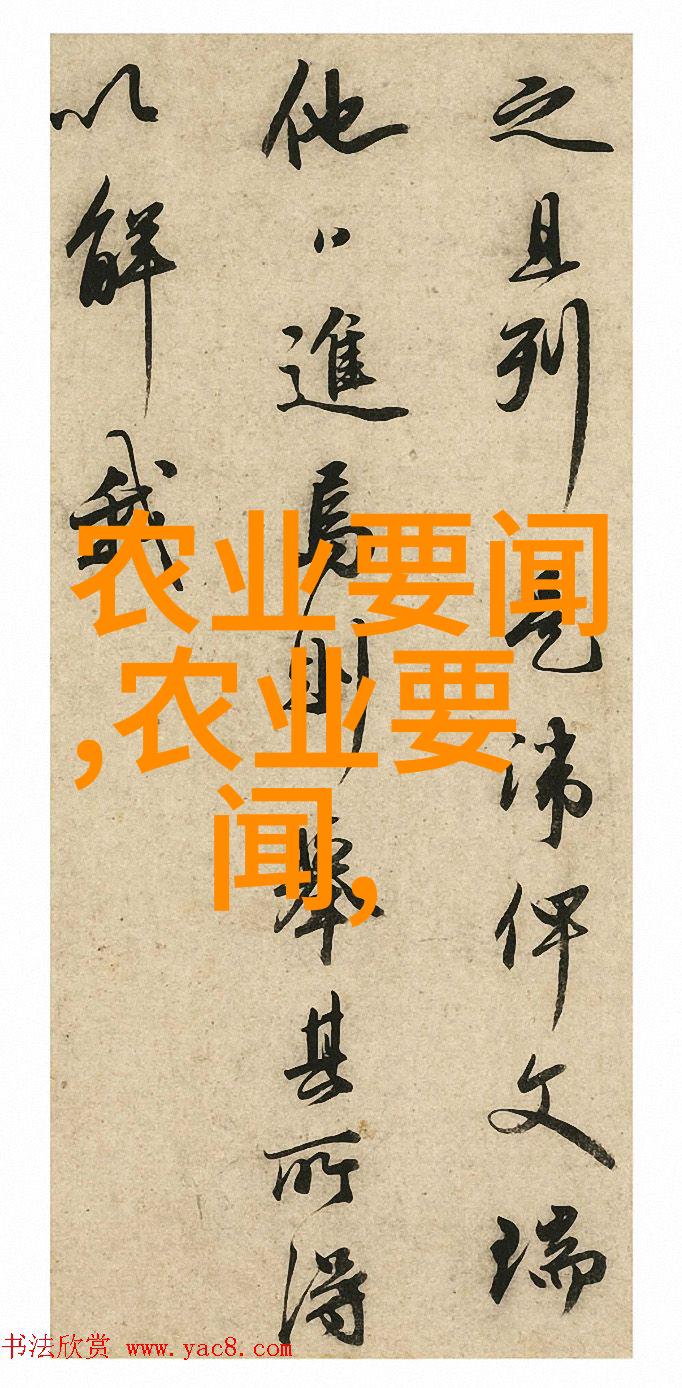 之且列是諱俾文瑞
他日進焉則舉其所得
以解我
农业要闻
,农业要
闻,
书法欣赏 www.yac8.com